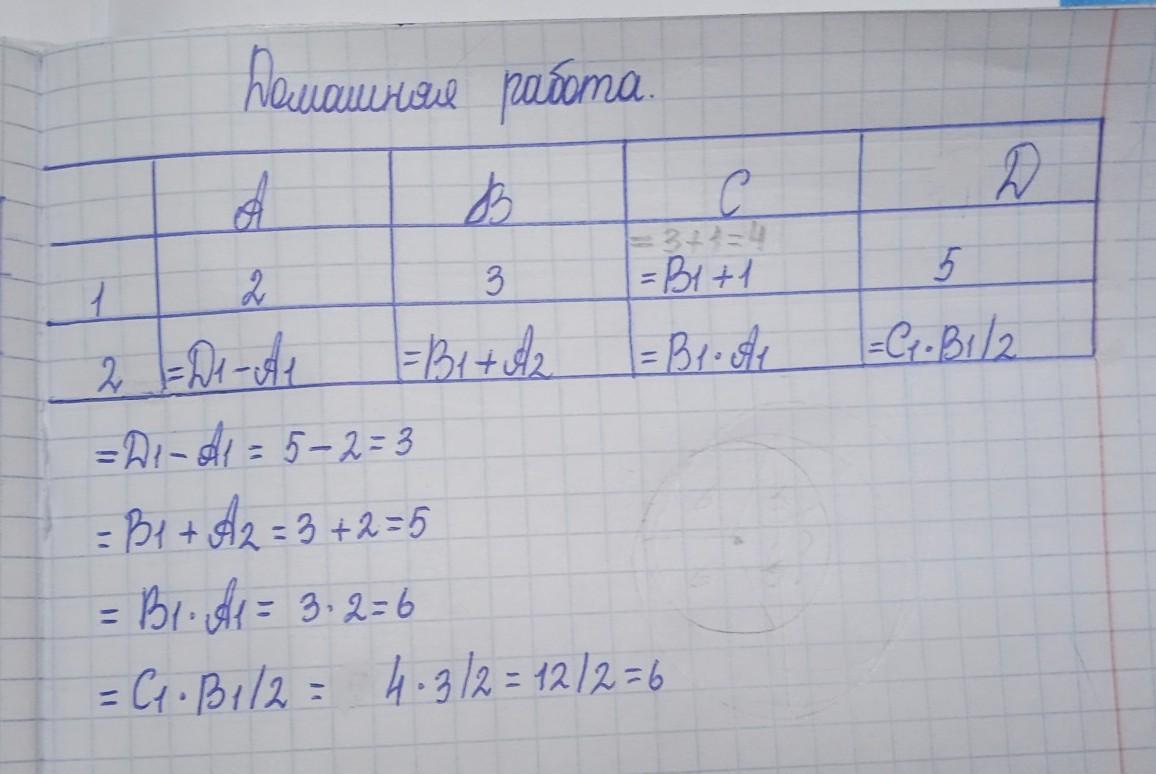 Домашняя работа.
A B C D
= 3+1=4
1 2 3 =B1+1 5
2 =D1-A1 =B1+A2 =B1·A1 =C1·B1/2
=D1-A1= 5-2=3
=B1+A2=3+2=5
=B1·A1= 3·2=6
=C1·B1/2= 4·3/2=12/2=6